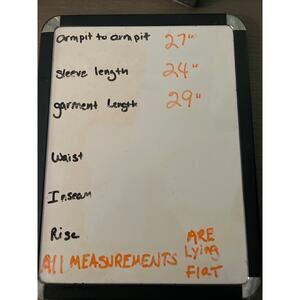 armpit to armpit 27"
sleeve length 24"
garment length 29"
Waist
Inseam
Rise
All MEASUREMENTS ARE
Lying
FlAT